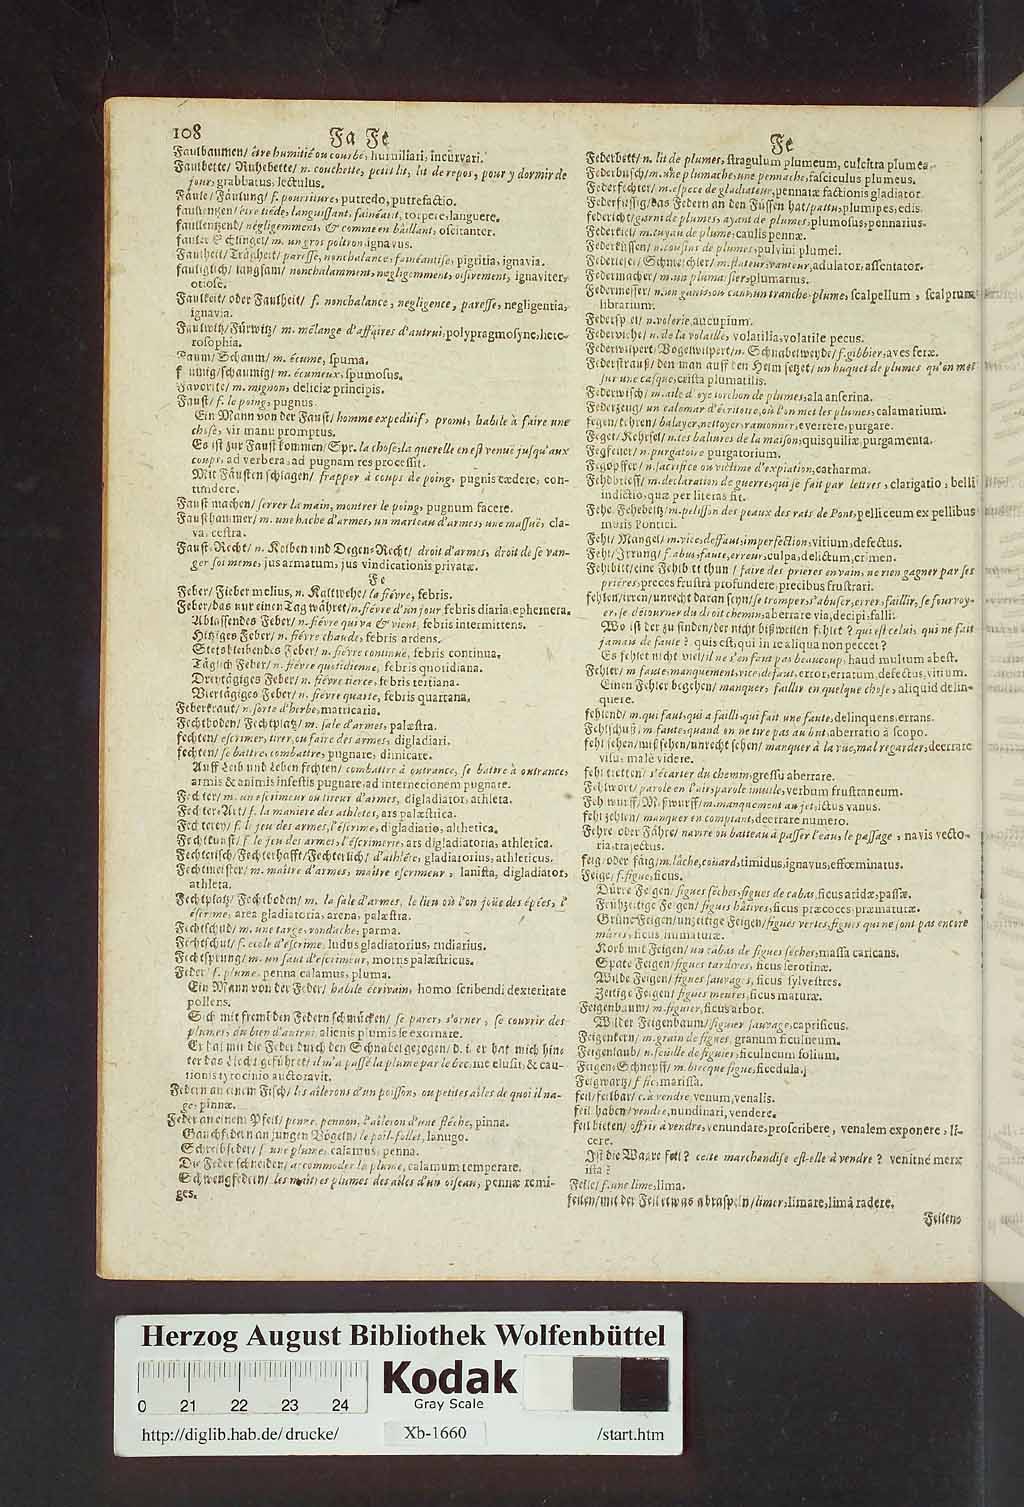 108
Fa Fe
Faulbaumen/ être humitié ou courbé, humiliari, incurvari.
Faulbette/ Ruhebette/ n. couchette, petit lit, lit de repos, pour y dormir de
jour, grabbatus, lectulus.
Fäule/ Fäulung/ f. pourriture, putredo, putrefactio.
faullentzen/ être tiéde, languissant, fainéant, torpere, languere.
faullentzend/ négligemment, & comme en bâillant, oscitanter.
fauler Schlingel/ m. un gros poltron, ignavus.
Faulheit/ Trägheit/ paresse, nonchalance, fainéantise, pigritia, ignavia.
fauliglich/ langsam/ nonchalamment, negligemment, oisivement, ignaviter,
otiose.
Faulkeit/ oder Faulheit/ f. nonchalance, negligence, paresse, negligentia,
ignavia.
Faulwitz/ Fürwitz/ m. mélange d'affaires d'autrui, polypragmosyne, hete-
rosophia.
Faum/ Schaum/ m. écume, spuma.
faumig/ schaumig/ m. écumeux, spumosus.
Favorite/ m. mignon, deliciæ principis.
Faust/ f. le poing, pugnus.
Ein Mann von der Faust/ homme expeditif, promt, habile à faire une
chose, vir manu promptus.
Es ist zur Faust kommen/ Spr. la chose, la querelle en est venuë jusqu'aux
coups, ad verbera, ad pugnam res processit.
Mit Fäusten schlagen/ frapper à coups de poing, pugnis cædere, con-
tundere.
Faust machen/ serrer la main, montrer le poing, pugnum facere.
Fausthammer/ m. une hache d'armes, un marteau d'armes, une massuë, cla-
va, cestra.
Faust-Recht/ n. Kolben und Degen-Recht/ droit d'armes, droit de se van-
ger soi même, jus armatum, jus vindicationis privatæ.
Fe
Feber/ Fieber melius, n. Kaltwehe/ la fiévre, febris.
Feber/ das nur einen Tag währet/ n. fiévre d'un jour febris diaria, ephemera.
Ablassendes Feber/ n. fiévre qui va & vient, febris intermittens.
Hitziges Feber/ n. fiévre chaude, febris ardens.
Stetsbleibendes Feber/ n. fiévre continuë, febris continua.
Täglich Feber/ n. fiévre quotidienne, febris quotidiana.
Dreytägiges Feber/ n. fiévre tierce, febris tertiana.
Viertägiges Feber/ n. fiévre quarte, febris quartana.
Feberkraut/ n. sorte d'herbe, matricaria.
Fechtboden/ Fechtplatz/ m. sale d'armes, palæstra.
fechten/ escrimer, tirer, ou faire des armes, digladiari.
fechten/ se battre, combattre, pugnare, dimicare.
Auff Leib und Leben fechten/ combattre à outrance, se battre à outrance,
armis & animis infestis pugnare, ad internecionem pugnare.
Fechter/ m. un escrimeur ou tireur d'armes, digladiator, athleta.
Fechter-Art/ f. la maniere des athletes, ars palæstrica.
Fechterey/ f. le jeu des armes, l'éscrime, digladiatio, alchetica.
Fechtkunst/ f. le jeu des armes, l'éscrimerie, ars digladiatoria, athletica.
Fechterisch/ Fechterhafft/ Fechterlich/ d'athlére, gladiatorius, athleticus.
Fechtmeister/ m. maître d'armes, maître escrimeur, lanista, digladiator,
athleta.
Fechtplatz/ Fechtboden/ m. la sale d'armes, le lieu où l'on joüe des épées, l'
éscrime, area gladiatoria, arena, palæstra.
Fechtschild/ m. une targe, rondache, parma.
Fechtschul/ f. ecole d'escrime, ludus gladiatorius, rudiarius.
Fechtsprung/ m. un saut d'escrimeur, motus palæstricus.
Feder/ f. plume, penna calamus, pluma.
Ein Mann von der Feder/ habile écrivain, homo scribendi dexteritate
pollens.
Sich mit fremden Federn schmücken/ se parer, s'orner, se couvrir des
plumes, du bien d'autrui, alienis plumis se exornare.
Er hat mir die Feder durch den Schnabel gezogen/ d. i. er hat mich hine
ter das Liecht geführet/ il m'a passé la plume par le bec, me elusit, & cau-
tionis tyrocinio auctoravit.
Federn an einem Fisch/ les ailerons d'un poisson, ou petites ailes de quoi il na-
ge, pinnæ.
Feder an einem Pfeil/ penne, pennon, l'aileron d'une fléche, pinna.
Gauchfedern an jungen Vögeln/ le poil-follet, lanugo.
Schreibfeder/ f. une plume, calamus, penna.
Die Feder schneiden/ accommoder la plume, calamum temperare.
Schwengfedern/ les maîtres plumes des ailes d'un oiseau, pennæ remi-
ges.
Fe
Federbett/ n. lit de plumes, stragulum plumeum, culcitra plumea.
Federbusch/ m. une plumache, une pennache, fasciculus plumeus.
Federfechter/ m. espece de gladiateur, pennatæ factionis gladiator.
Federfüssig/ das Federn an den Füssen hat/ pattu, plumipes, edis.
federicht/ garni de plumes, ayant de plumes, plumosus, pennarius.
Federkiel/ m. tuyau de plume, caulis pennæ.
Federküssen/ n. cousins de plumes, pulvini plumei.
Federleser/ Schmeichler/ m. flateur, vanteur, adulator, assentator.
Federmacher/ m. un plumassier, plumarius.
Federmesser/ n. un ganif, ou canif, un tranche-plume, scalpellum, scalprum
librarium.
Federspiel/ n. volerie, aucupium.
Federviehe/ n. de la volaille, volatilia, volatile pecus.
Federwilpert/ Vogelwilpert/ n. Schnabelweyde/ f. gibbier, aves feræ.
Federstrauß/ den man auff den Helm setzet/ un buquet de plumes qu'on met
sur une casque, crista plumatilis.
Federwisch/ m. aile d'oye, torchon de plumes, ala anserina.
Federzeug/ un calemar d'écritoire, où l'on met les plumes, calamarium.
fegen/ kehren/ balayer, nettoyer, ramonner, everrere, purgare.
Feget/ Kehrsel/ n. les baliures de la maison, quisquiliæ, purgamenta.
Fegfeuer/ n. purgatoire purgatorium.
Fegopffer/ n. sacrifice ou victime d'expiation, catharma.
Fehdbrieff/ m. declaration de guerre, qui se fait par lettres, clarigatio, belli
indictio, quæ per literas fit.
Fehe, Fehebeltz/ m. pelisson des peaux des rats de Pont, pelliceum ex pellibus
muris Pontici.
Fehl/ Mangel/ m. vice, deffaut, imperfection, vitium, defectus.
Fehl/ Irrung/ f. abus, faute, erreur, culpa, delictum, crimen.
Fehlbitt/ eine Fehlbitt thun/ faire des prieres en vain, ne rien gagner par ses
priéres, preces frustrà profundere, precibus frustrari.
fehlen/ irren/ unrecht daran seyn/ se tromper, s'abuser, errer, faillir, se fourvoy-
er, se détourner du droit chemin, aberrare via, decipi, falli.
Wo ist der zu finden/ der nicht bißweilen fehlet? qui est celui, qui ne fait
jamais de faute? quis est, qui in re aliqua non peccet?
Es fehlet nicht viel/ il ne s'en faut pas beaucoup, haud multum abest.
Fehler/ m faute, manquement, vice, défaut, error, erratum, defectus, vitium.
Einen Fehler begehen/ manquer, faillir en quelque chose, aliquid delin-
quere.
fehlend/ m. qui faut, qui a failli, qui fait une faute, delinquens, errans.
Fehlschuß, m. faute, quand on ne tire pas au but, aberratio à scopo.
fehl sehen/ miß sehen/ unrecht sehen/ manquer à la vue, mal regarder, deerrare
visu, malè videre.
fehl tretten/ s'écarter du chemin, gressu aberrare.
Fehlwort/ parole en l'air, parole inutile, verbum frustraneum.
Fehlwurff/ Mißwurff/ m. manquement au jet, ictus vanus.
fehl zehlen/ manquer en comptant, deerrare numero.
Fehre oder Fähre/ navire ou batteau à passer l'eau, le passage, navis vecto-
ria, trajectus.
feig/ oder färg/ m. lâche, coüard, timidus, ignavus, effœminatus.
Feige/ f. figue, ficus.
Dürre Feigen/ figues séches, figues de cabas, ficus aridæ, passæ.
Frühzeitige Feigen/ figues hâtives, ficus præcoces, præmaturæ.
Grüne Feigen/ unzeitige Feigen/ figues vertes, figues qui ne sont pas encore
mûres, ficus immaturæ.
Korb mit Feigen/ un cabas de figues séches, massa caricans.
Spate Feigen/ figues tardives, ficus serotinæ.
Wilde Feigen/ figues sauvages, ficus sylvestres.
Zeitige Feigen/ figues meures, ficus maturæ.
Feigenbaum/ m. figuier, ficus arbor.
Wilder Feigenbaum/ figuier sauvage, caprificus.
Feigenkern/ m. grain de figues, granum ficulneum.
Feigenlaub/ n. feüille de figuier, ficulneum folium.
Feigen-Schnepff/ m. biecque figue, ficedula.
Feigwartz/ f. fic, marissa.
feil/ feilbar/ c. à vendre, venum, venalis.
feil haben/ vendre, nundinari, vendere.
feil bieten/ offrir à vendre, venundare, proscribere, venalem exponere, li-
cere.
Ist die Waare feil? cette marchandise est-elle à vendre? venitne merx
ista?
Feile/ f. une lime, lima.
feilen/ mit der Feil etwas abraspeln/ limer, limare, limâ radere.
Feilens
Herzog August Bibliothek Wolfenbüttel
0 21 22 23 24
Kodak
Gray Scale
http://diglib.hab.de/drucke/ Xb-1660 /start.htm